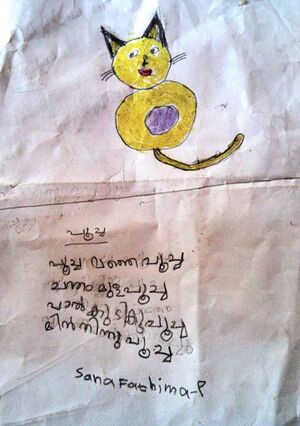 പൂച്ച
പൂച്ച വന്നെ പൂച്ച
പൂച്ച
പാൽ കുടിക്കു പൂച്ച
മീൻ തിന്നു പൂച്ച
Sana Fathima-P